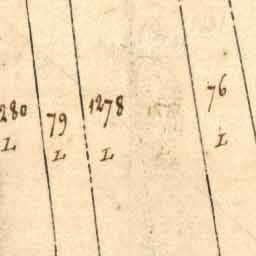 280 79 1278 76
L L L L